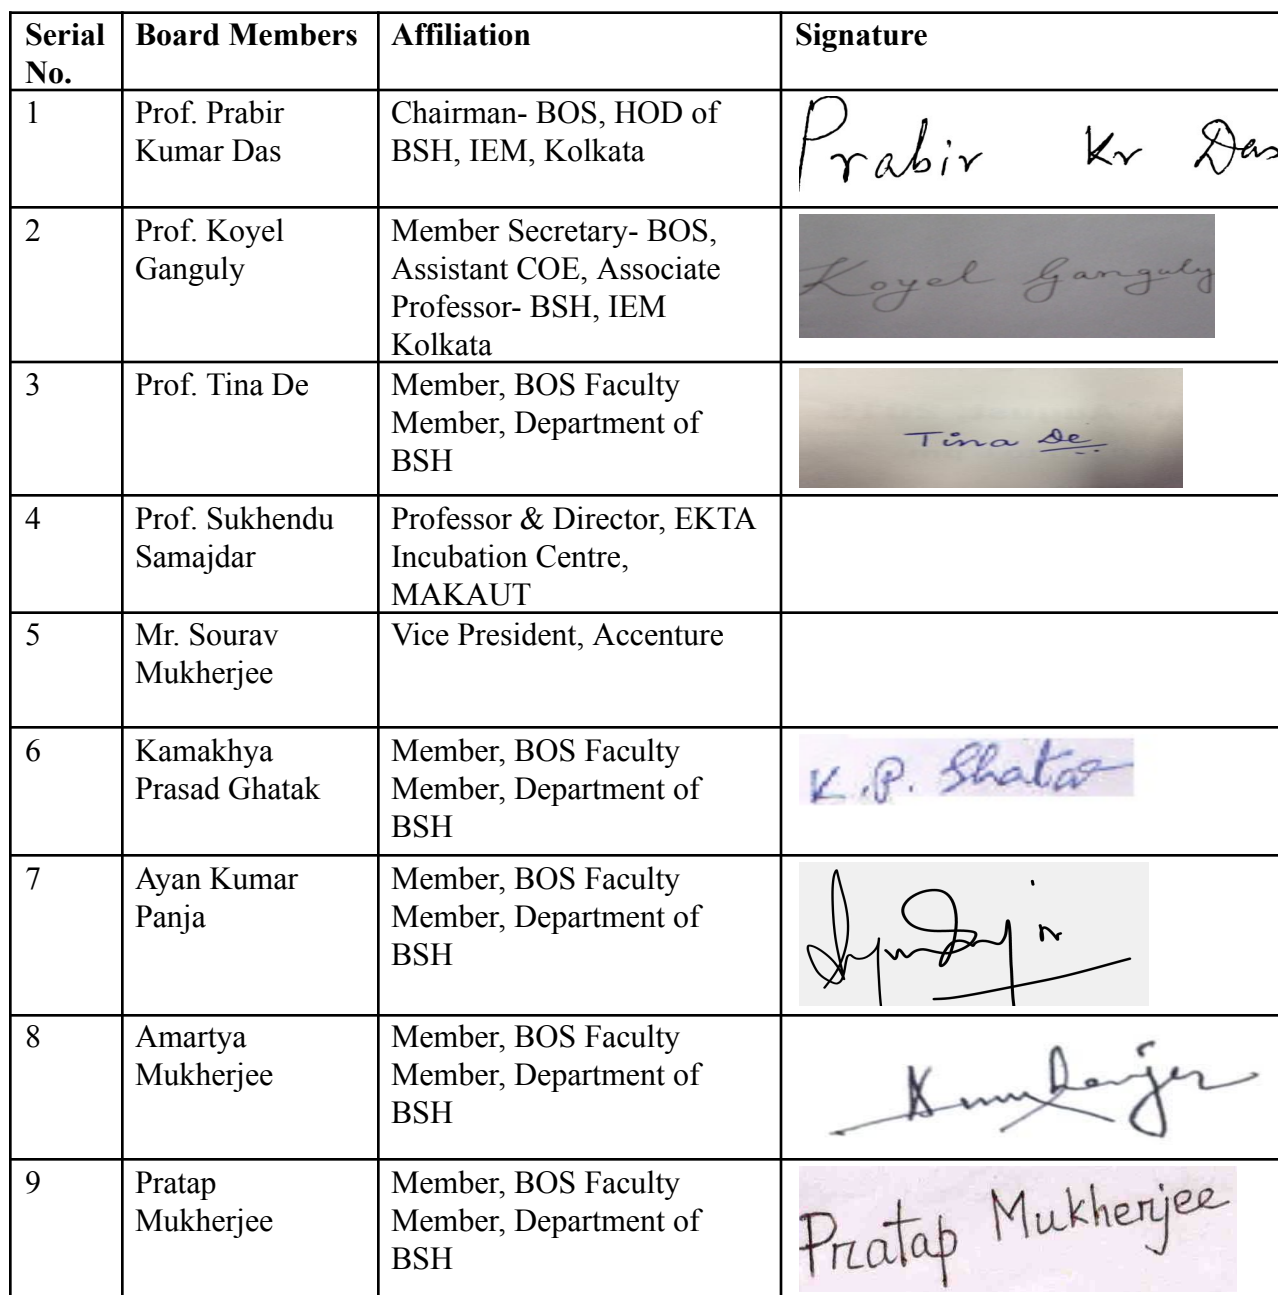 Serial No.
Board Members
Affiliation
Signature
1
Prof. Prabir
Kumar Das
Chairman- BOS, HOD of
BSH, IEM, Kolkata
Prabir Kr Das
2
Prof. Koyel
Ganguly
Member Secretary- BOS,
Assistant COE, Associate
Professor- BSH, IEM
Kolkata
Koyel Ganguly
3
Prof. Tina De
Member, BOS Faculty
Member, Department of
BSH
Tina De
4
Prof. Sukhendu
Samajdar
Professor & Director, EKTA
Incubation Centre,
MAKAUT
5
Mr. Sourav
Mukherjee
Vice President, Accenture
6
Kamakhya
Prasad Ghatak
Member, BOS Faculty
Member, Department of
BSH
K.P. Ghatak
7
Ayan Kumar
Panja
Member, BOS Faculty
Member, Department of
BSH
8
Amartya
Mukherjee
Member, BOS Faculty
Member, Department of
BSH
9
Pratap
Mukherjee
Member, BOS Faculty
Member, Department of
BSH
Pratap Mukherjee